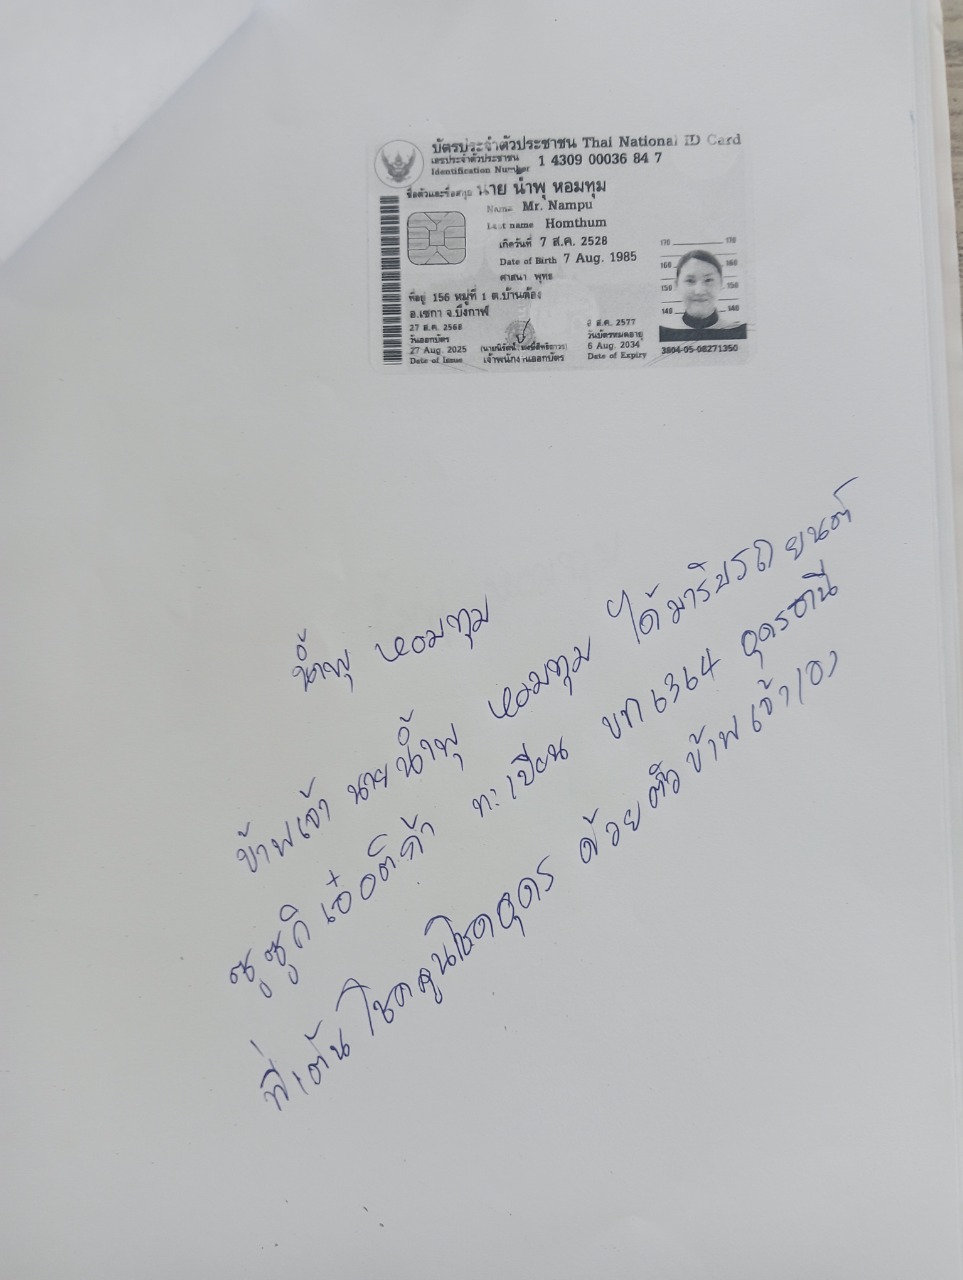 บัตรประจำตัวประชาชน Thai National ID Card
เลขประจำตัวประชาชน 1 4309 00036 84 7
Identification Number
ชื่อตัวและชื่อสกุล นาย น้ำพุ หอมทุม
Name Mr. Nampu
Last name Homthum
เกิดวันที่ 7 ส.ค. 2528
Date of Birth 7 Aug. 1985
ศาสนา พุทธ
ที่อยู่ 156 หมู่ที่ 1 ต.บ้านต้อง
อ.เซกา จ.บึงกาฬ
27 ส.ค. 2568
วันออกบัตร
27 Aug. 2025
Date of Issue
เจ้าพนักงานออกบัตร
6 ส.ค. 2577
วันบัตรหมดอายุ
6 Aug. 2034
Date of Expiry
170 170
160 160
150 150
140 140
3804-05-08271350
น้ำพุ หอมทุม
ข้าพเจ้า นาย น้ำพุ หอมทุม ได้มารับรถยนต์
ซูซูกิ เอ๋อติก้า ทะเบียน 6364 อุดรธานี
ที่เต้นโชคคูนโชคอุดร ด้วยตัวข้าพเจ้าเอง